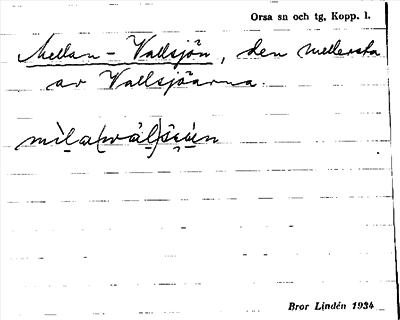 Orsa sn och tg, Kopp. l.
Mellan-Vallsjön, den mellersta
av Vallsjöarna.
Bror Lindén 1934